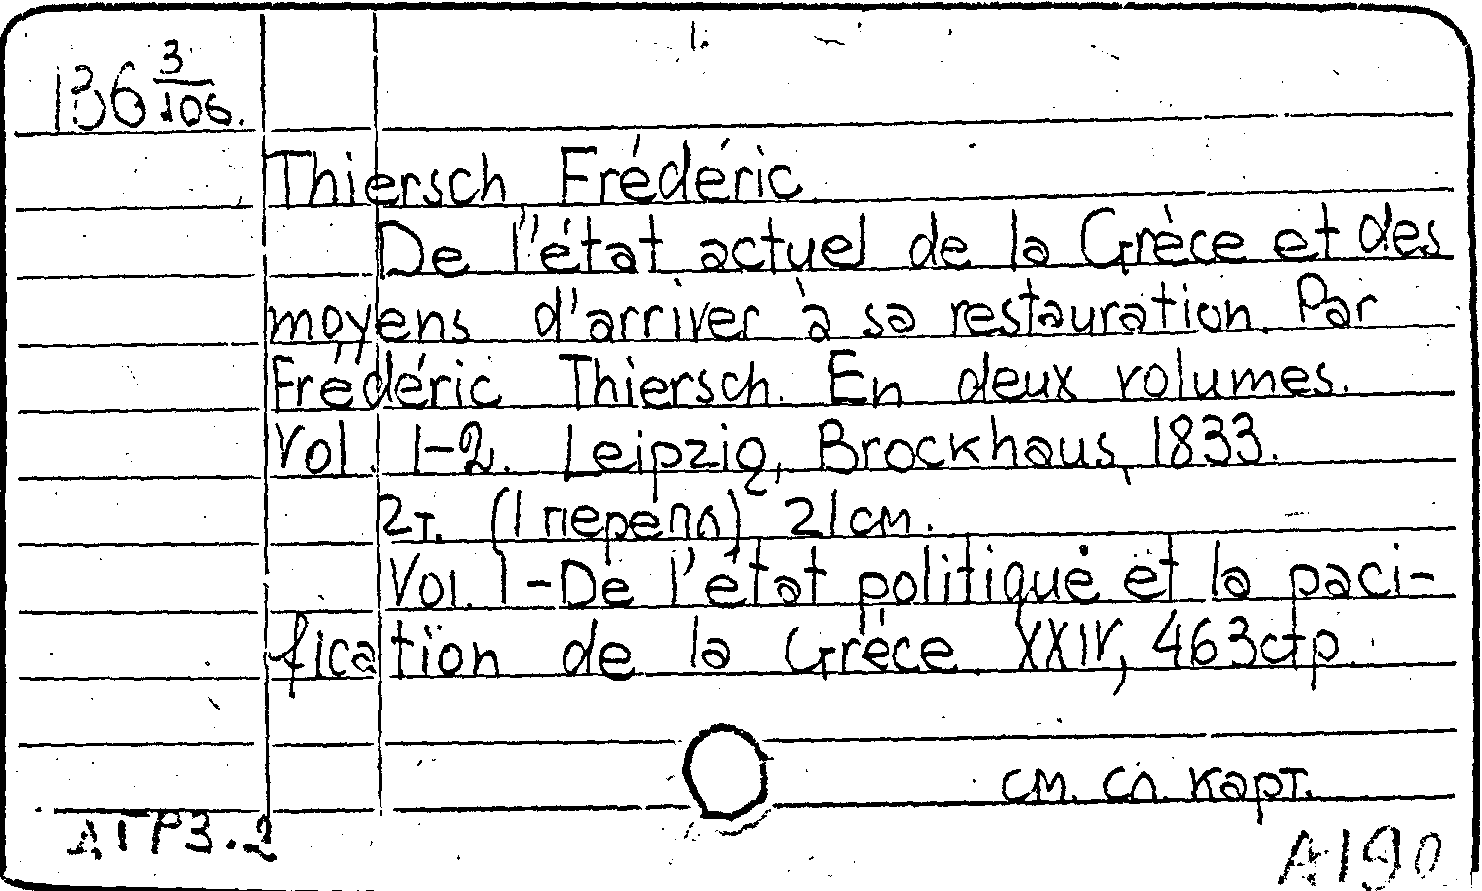 1.
136 3/106.
Thiersch Frédéric.
De l'état actuel de la Grèce et des
moyens d'arriver à sa restauration. Par
Frédéric Thiersch. En deux volumes.
Vol. 1-2. Leipzig, Brockhaus, 1833.
2т. (1 перепл) 21см.
Vol. 1-De l'état politique et la paci-
fication de la Grèce. XXIV, 463стр.
см. сл. карт.
АГРЗ.2
A190